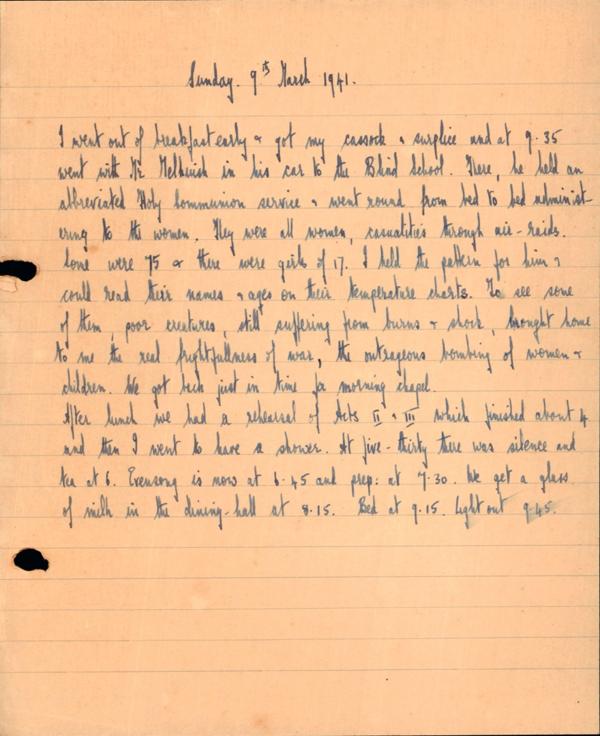 Sunday. 9th March 1941.
I went out of breakfast early & got my cassock & surplice and at 9.35
went with Mr Melhuish in his car to the Blind School. There, he held an
abbreviated Holy Communion service & went round from bed to bed administ-
ering to the women. They were all women, casualities through air-raids.
Some were 75 & there were girls of 17. I held the patten for him &
could read their names & ages on their temperature charts. To see some
of them, poor creatures, still suffering from burns & shock, brought home
to me the real frightfullness of war, the outrageous bombing of women &
children. We got back just in time for morning chapel.
After lunch we had a rehearsal of Acts II & III which finished about 4
and then I went to have a shower. At five-thirty there was silence and
tea at 6. Evensong is now at 6.45 and prep: at 7.30. We get a glass
of milk in the dining-hall at 8.15. Bed at 9.15. Light out 9.45.